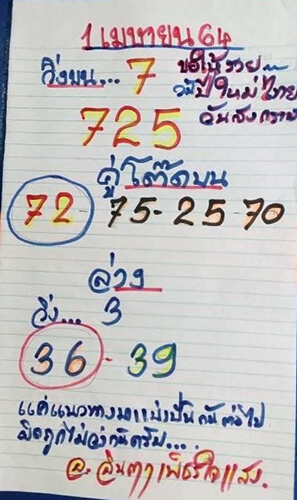 1 เมษายน 64
วิ่งบน... 7 ขอให้รวย
วปีใหม่ไทย
725 วันสงกราน
คู่โต๊ดบน
72 75-25-70
ล่าง
วิ่ง... 3
36 - 39
แค่แนวทางมาแบ่งปันกันต่อไป
มือถูกไม่ว่ากันครับ....
อ. จินตา เพ็ชรใจแสง.